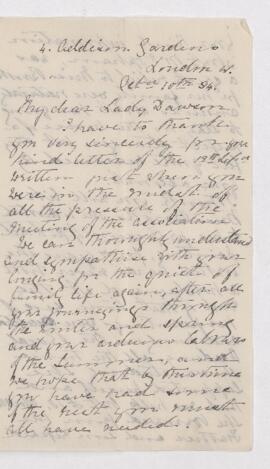 4. Addison Gardens
London W.
Oct. 10th 84.
My dear Lady Dawson
I have to thank
you very sincerely for your
kind letter of the Sept
written just when you
were in the midst of
all the pressure of the
meeting of the association
We can thoroughly understand
and sympathise with your
longing for the quiet of
family life again, after all
your journeyings through
the winter and spring
and your arduous labors
of the Summer, and
we hope that by this time
you have had some
of the rest you must
all have needed.